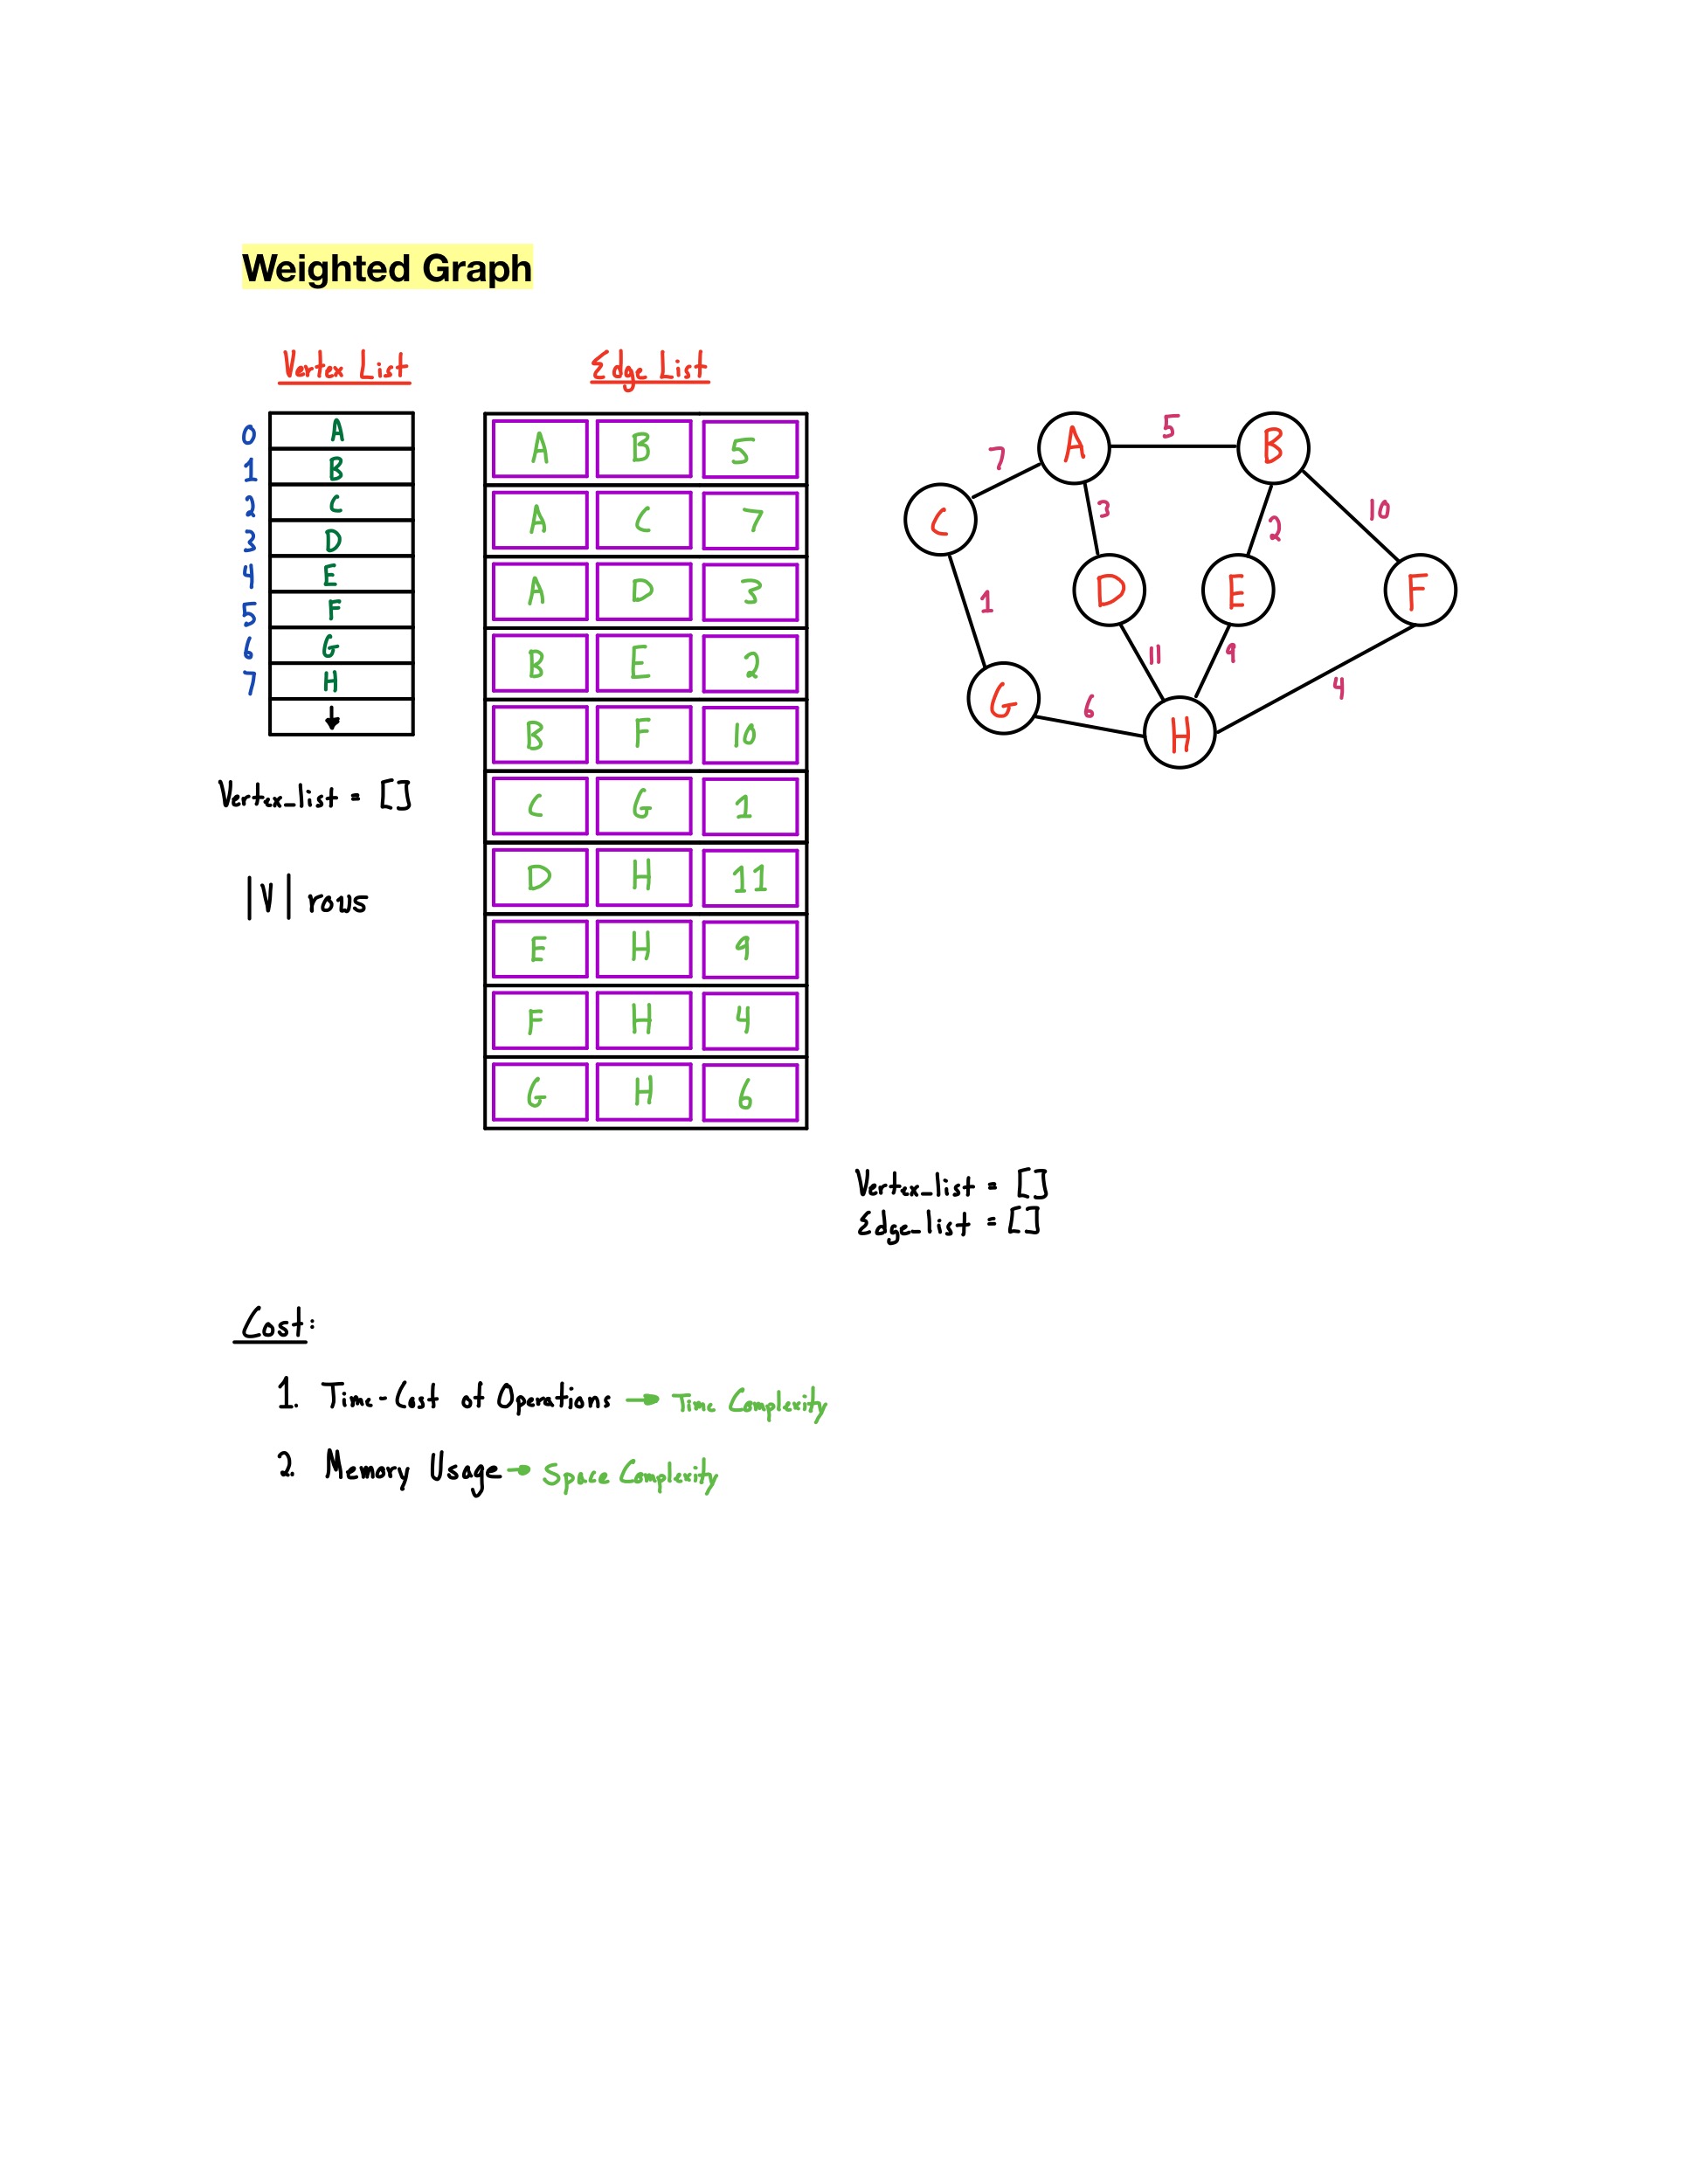 Weighted Graph
Vertex List
0 A
1 B
2 C
3 D
4 E
5 F
6 G
7 H
Vertex_list = []
|V| rows
Edge List
A B 5
A C 7
A D 3
B E 2
B F 10
C G 1
D H 11
E H 9
F H 4
G H 6
A 5 B
7
C
3
2
10
D
E
F
1
11
9
4
G
6
H
Vertex_list = []
Edge_list = []
Cost:
1. Time-Cost of Operations → Time Complexity
2. Memory Usage → Space Complexity